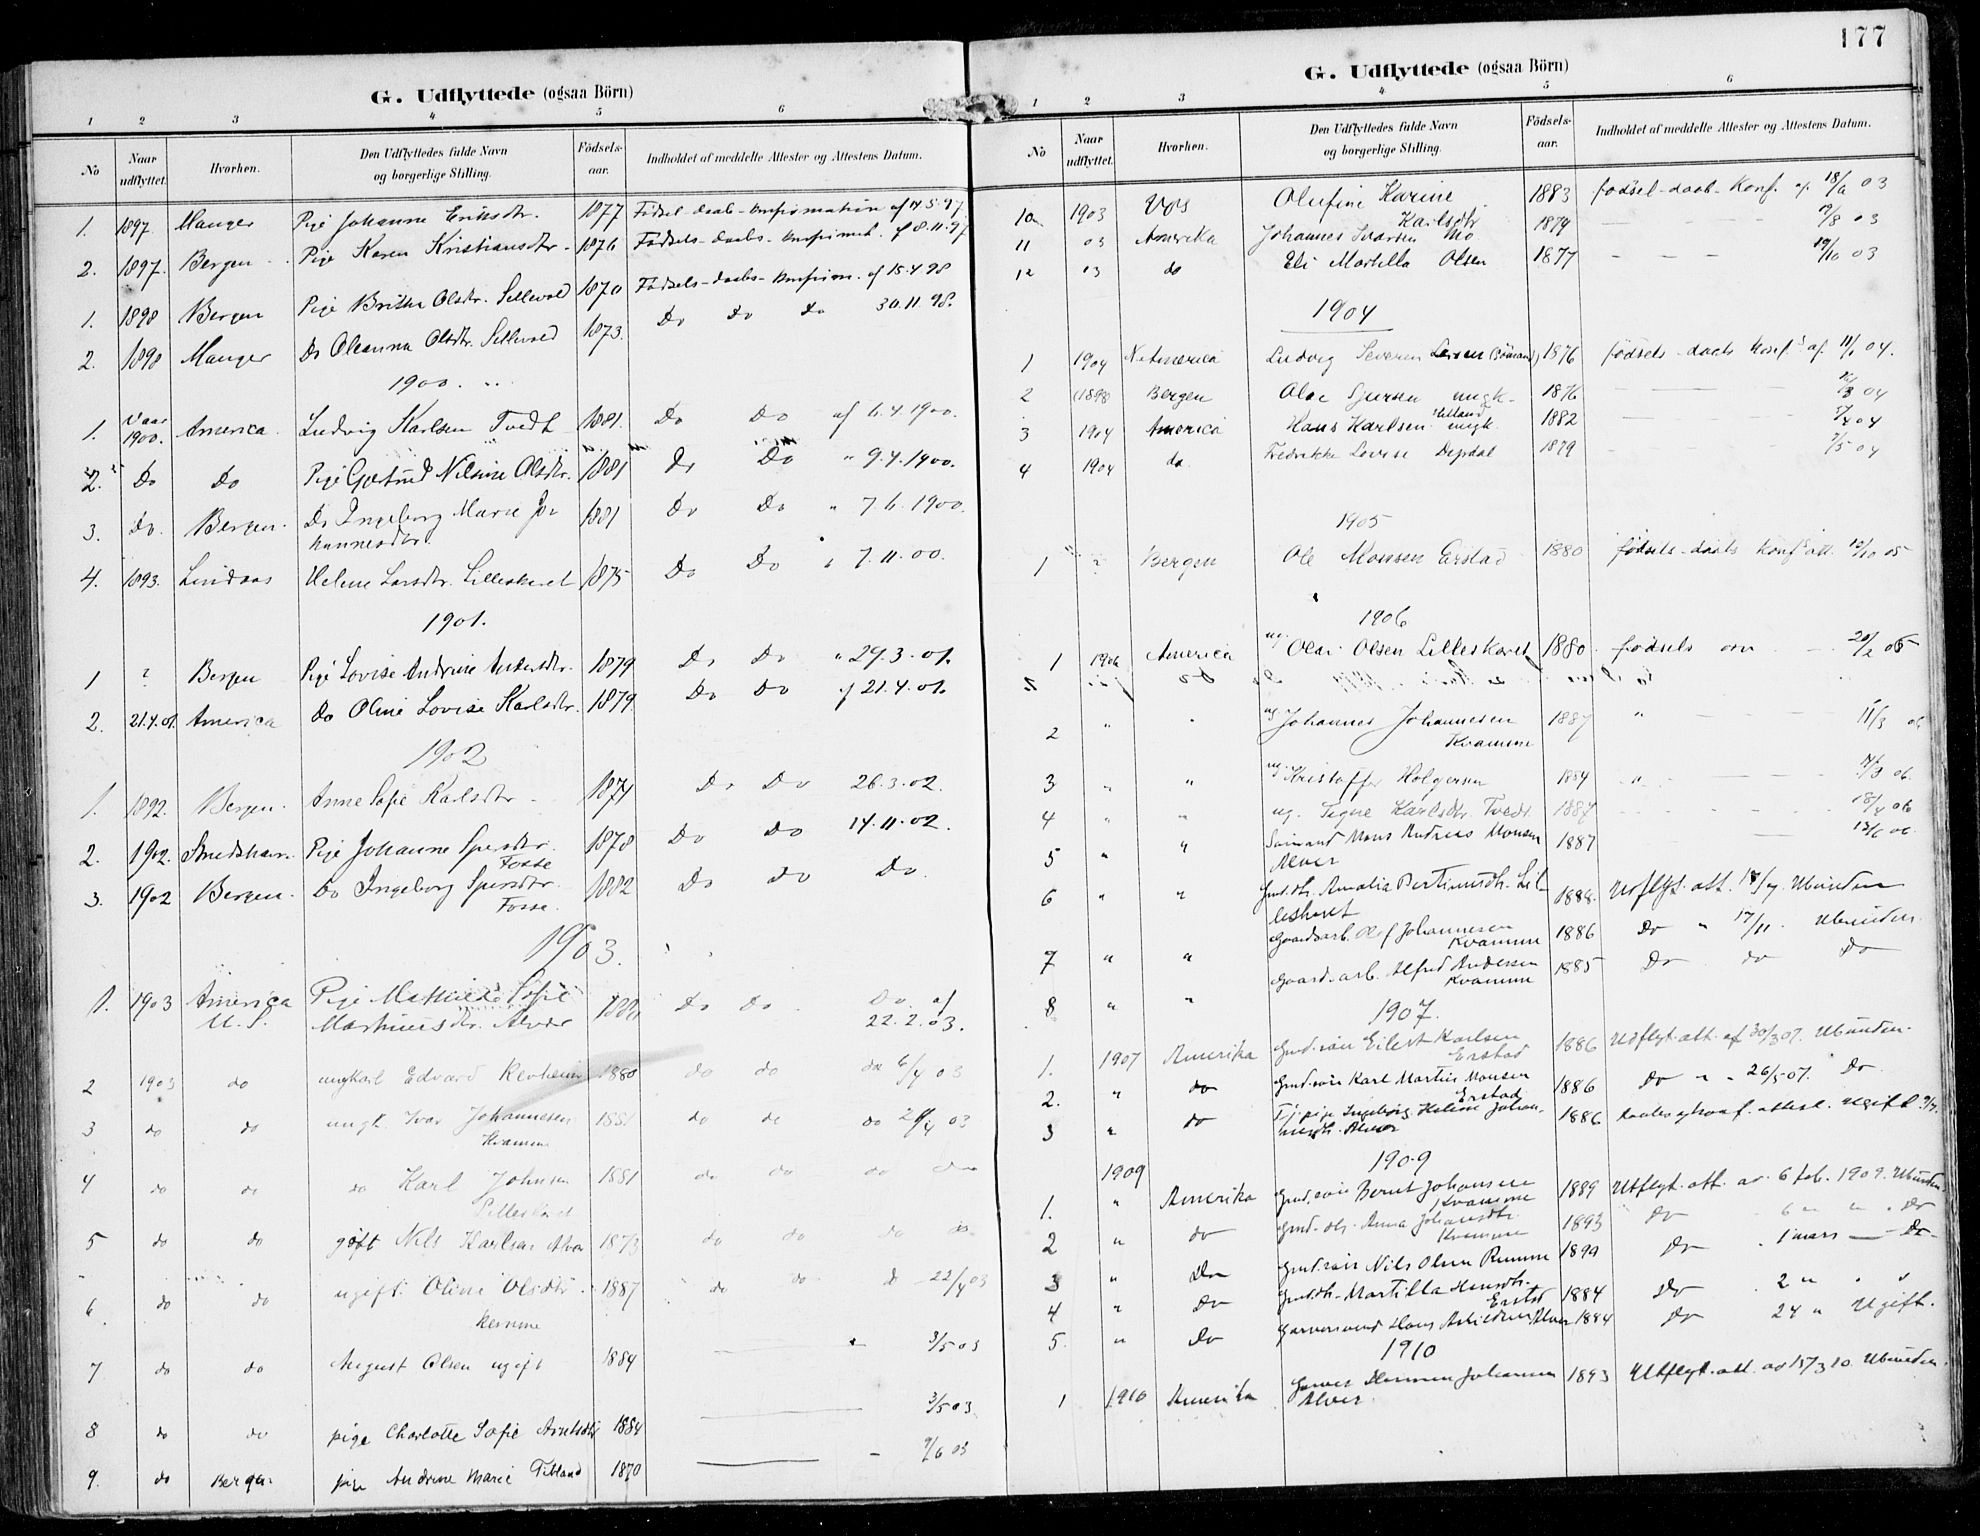 G. Udflyttede (ogsaa Börn)
1 2 3 4 5 6
No Naar udflyttet. Hvorhen. Den Udflyttedes fulde Navn og borgerlige Stilling. Födsels-aar. Indholdet af meddelte Attester og Attestens Datum.
1. 1897. Manger Pige Johanne Eriksdtr. 1877 Födsel-daab-konfirmation af 14.5.97
2. 1897. Bergen Pige Karen Kristiansdtr. 1876 Födsels-daabs-konfirmat. af 8.11.97
1. 1898 Bergen Pige Britha Olsdtr. Sellevold 1870 Födsels-daabs-konfirm. af 15.4.98
2. 1898 Manger Do Oleanna Olsdtr. Sellevold 1873. Do Do Do 30.11.98.
1900.
1. Vaar 1900. America Ludvig Karlsen Tvedt 1881. Do Do af 6.4.1900.
2. Do Do Pige Gjertrud Nilsine Olsdtr. 1881 Do Do " 9.4.1900.
3. Do. Bergen. Do Ingeborg Marie Jo-
hannesdtr. 1881 Do Do " 7.6.1900.
4. 1893. Lindaas Helene Larsdtr. Lilleskaret 1875 Do Do " 7.11.00.
1901.
1 ? Bergen Pige Lovise Andrine Andersdtr. 1879 Do Do " 29.3.01.
2. 21.4.01. America Do Oline Lovise Karlsdtr. 1879. Do Do af 21.4.01.
1902
1. 1892. Bergen. Anne Sofie Karlsdtr 1874 Do Do 26.3.02.
2. 1902. Pige Johanne Spersdtr.
Fosse 1878 Do Do 14.11.02.
3. 1902 Bergen. Do Ingeborg Spersdtr.
Fosse. 1882 Do Do Do.
1903.
1. 1903 America
U.S. Pige Mathilde Sofie
Martinusdtr. Alver Do Do Do af
22.2.03.
2 1903 do ungkarl Edvard 1880 do do do 6/4 03
3 do do ungk. Ivar Johannesen
Kvamme 1881 do do do 03
4 do do do Karl Johnsen 1881 do do do
5 do do gift Nils Karlsen Alver 1873 do do do do
6 do do ugift. Oline Olsdtr. 1887 do do do 22/4 03
7 do do August Olsen ugift 1884 3/5 03
8 do do pige Charlotte Sofie 1884 3/5 03
9. do Bergen pige Andrine Marie 1870 9/6 03
177
G. Udflyttede (ogsaa Börn)
1 2 3 4 5 6
No Naar udflyttet. Hvorhen. Den Udflyttedes fulde Navn og borgerlige Stilling. Födsels-aar. Indholdet af meddelte Attester og Attestens Datum.
10 1903 Olufine Karine
Karlsdtr 1883 fødsel-daab-konf. af 03
11 03 Amerika Johannes Mo 1879 19/8 03
12 03 do Eli Martilla Olsen 1877 19/10 03
1904
1 1904 N. America Ludvig Severin 1876 fødsels-daabs konf. af. 11/1 04.
2 (1898 Bergen Olai Sjursen ungk. 1876 04
3 1904 America Hans Karlsen ungk. 1882 04
4 1904 do Fredrikke Lovise Dyrdal 1879 7/5 04
1905
1 ? Bergen Ole Monsen Erstad 1880 fødsels-daabs konf. att. 10/10 05
1906
1 1906 America ug. Olai Olsen Lilleskaret 1880. fødsels
2 " " ug Johannes Johannesen
Kvamme 1887 " 11/3 06
3 " " ug. Kristoffer Holgersen 1884 06.
4 " " ug. Signe Karlsdtr. Tvedt 1887 18/4 06
5 " " Sömand Mons Andreas Monsen
Alver 1887 13/6 06
6 " " Gmd. dtr. Amalia Bertinusdtr. Lil-
leskaret 1888. Udflyt. att. Ubunden
7 " " Gaardsarb. Olaf Johannesen
Kvamme 1886 Do " 17/11. Ubunden.
8 " " Gaard.arb. Alfred Andersen
Kvamme 1885 Do do Do
1907.
1. 1907 Amerika Gmd.sön Eilert Karlsen
Erstad 1886 Udflyt. att. af 30/3 07. Ubunden.
2. " do Gmd.sön Karl Martin Monsen
Erstad 1886 Do " " 26/5 07. Do
3 " do Tj.pige Ingeborg Helene Johan-
nesdtr. Alver 1886 Daabs og konf. attest. Ugift.
1909
1. " Amerika Gmd.sön Bernt Johansen
Kvamme 1889 Utflyt. att. av 6 feb. 1909. Ubunden.
2 " do Gmd. dtr. Anna Johansdtr.
Kvamme 1893 Do 6 " " " Do
3 " Do Gmd.sön Nils Olsen 1890 Do " 1 mars — Do
4 " Do Gmd.dtr. Martilla Hansdtr.
Erstad 1884 Do " 2 " " "
5. " Do Garversvend Hans Alver 1884 Do 24 " Ugift.
1910
1 1910 Amerika Garver Herman Johannesen
Alver 1893 Utflyt. att. av 15/3 10. Ubunden.